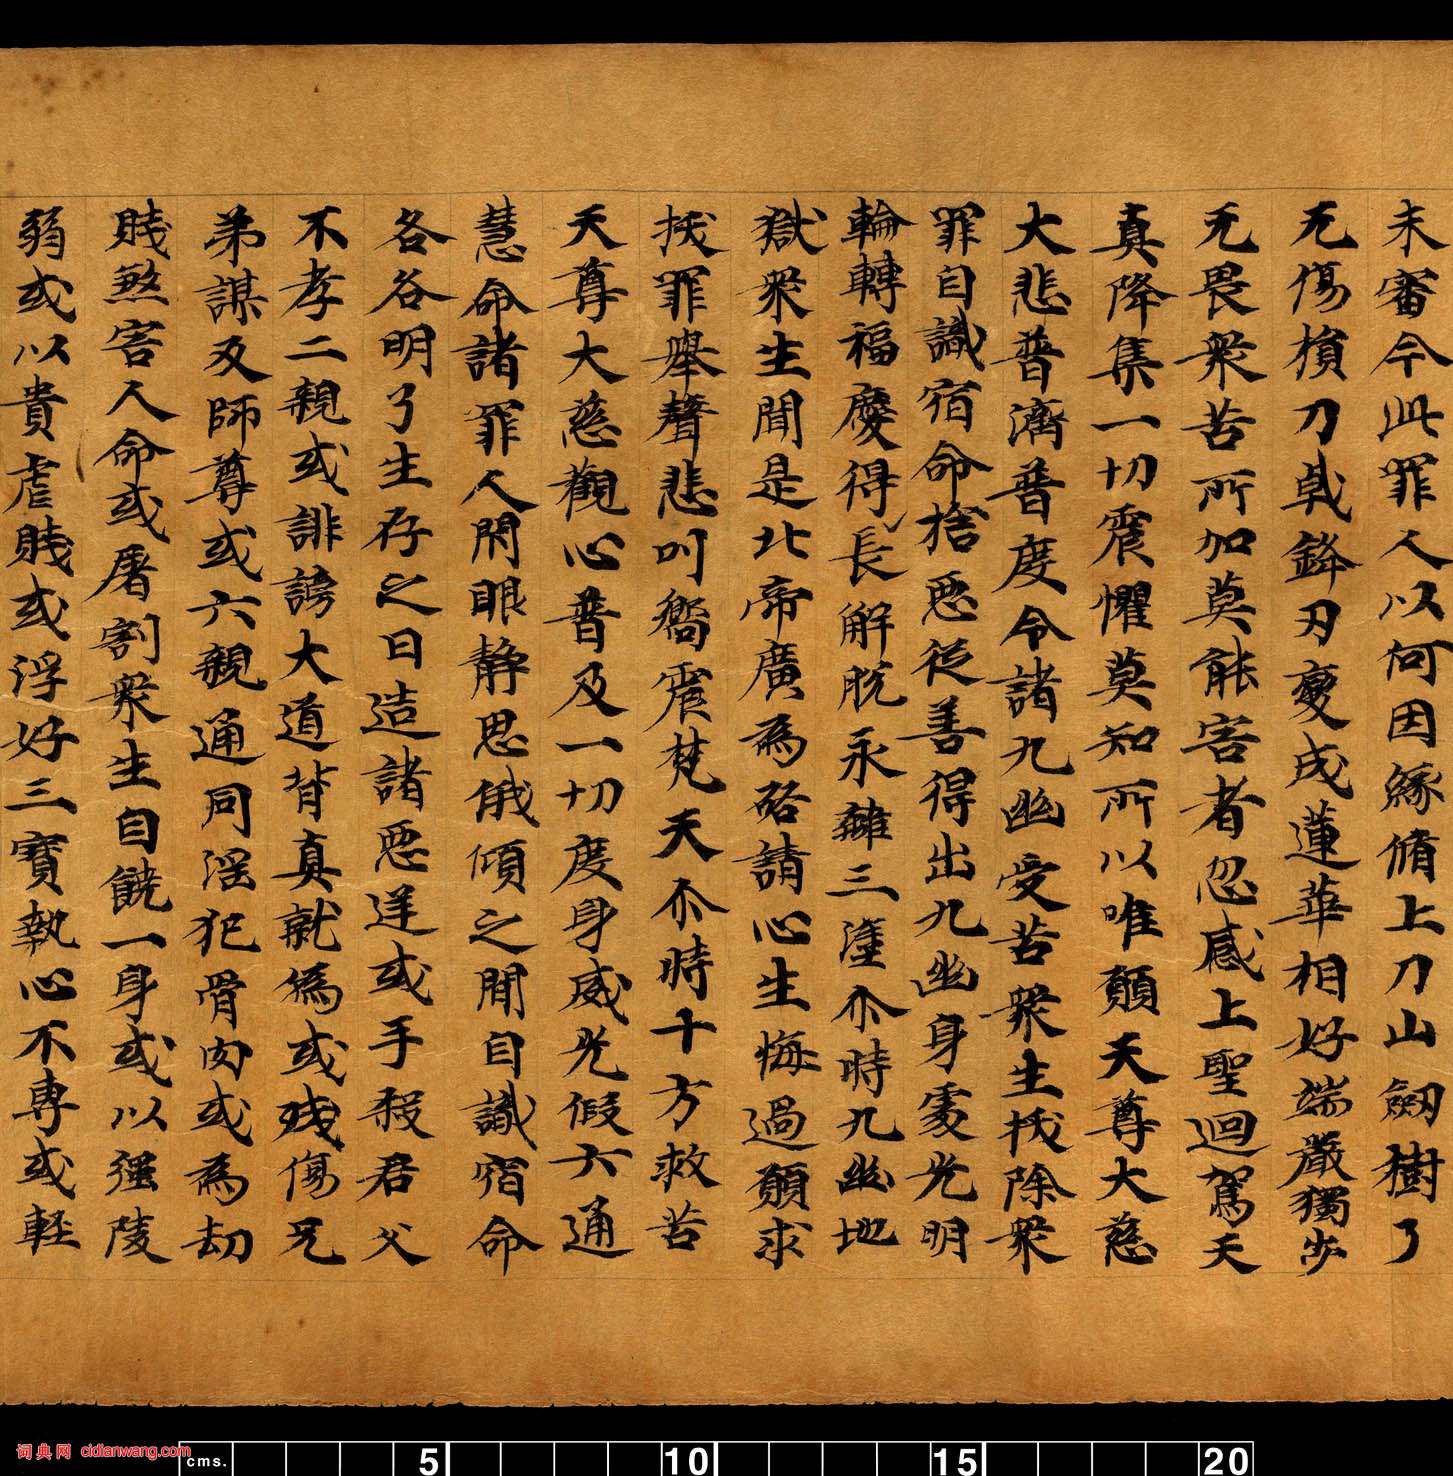 未審今此罪人以何因緣脩上刀山劔樹了
无傷損刀戟鋒刃變成蓮華相好端嚴獨步
无畏衆苦所加莫能害者忽感上聖迴駕天
真降集一切震懼莫知所以唯願天尊大慈
大悲普濟普度令諸九幽受苦衆生拔除衆
罪自識宿命捨惡從善得出九幽身處光明
輪轉福慶得長解脫永離三塗尒時九幽地
獄衆生聞是北帝廣爲啓請心生悔過願求
拔罪舉聲悲叫嚮震梵天尒時十方救苦
天尊大慈觀心普及一切度身威光假六通
慧命諸罪人閇眼静思俄傾之間自識宿命
各各明了生存之日造諸惡逆或手殺君父
不孝二親或誹謗大道背真就僞或殘傷兄
弟謀及師尊或六親通同滛犯骨肉或爲劫
賤煞害人命或屠割衆生自饒一身或以强陵
弱或以貴虐賤或浮好三寳執心不專或輕
词典网 cidianwang.com
cms. 5 10 15 20